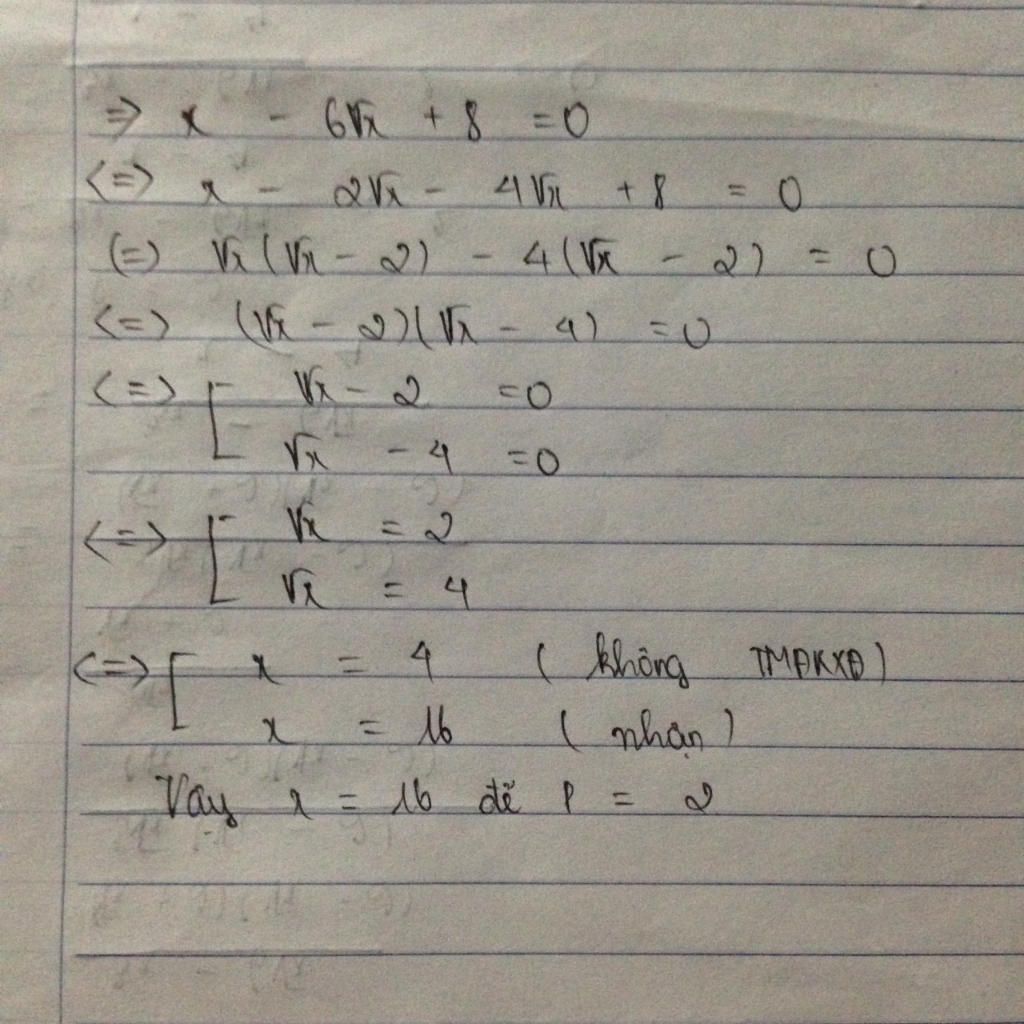 => x - 6√x + 8 = 0
<=> x - 2√x - 4√x + 8 = 0
(=) √x (√x - 2) - 4 (√x - 2) = 0
<=> (√x - 2)(√x - 4) = 0
<=> [ √x - 2 = 0
√x - 4 = 0
<=> [ √x = 2
√x = 4
<=> [ x = 4 ( không TMĐKXĐ)
x = 16 ( nhận )
Vậy x = 16 để P = 2